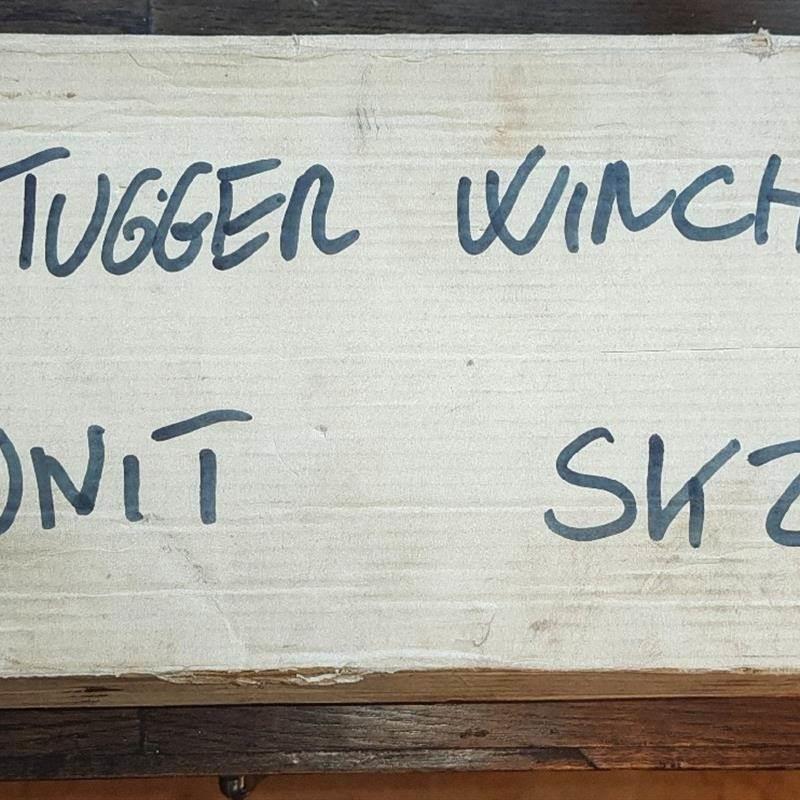 TUGGER WINCH
UNIT SK2